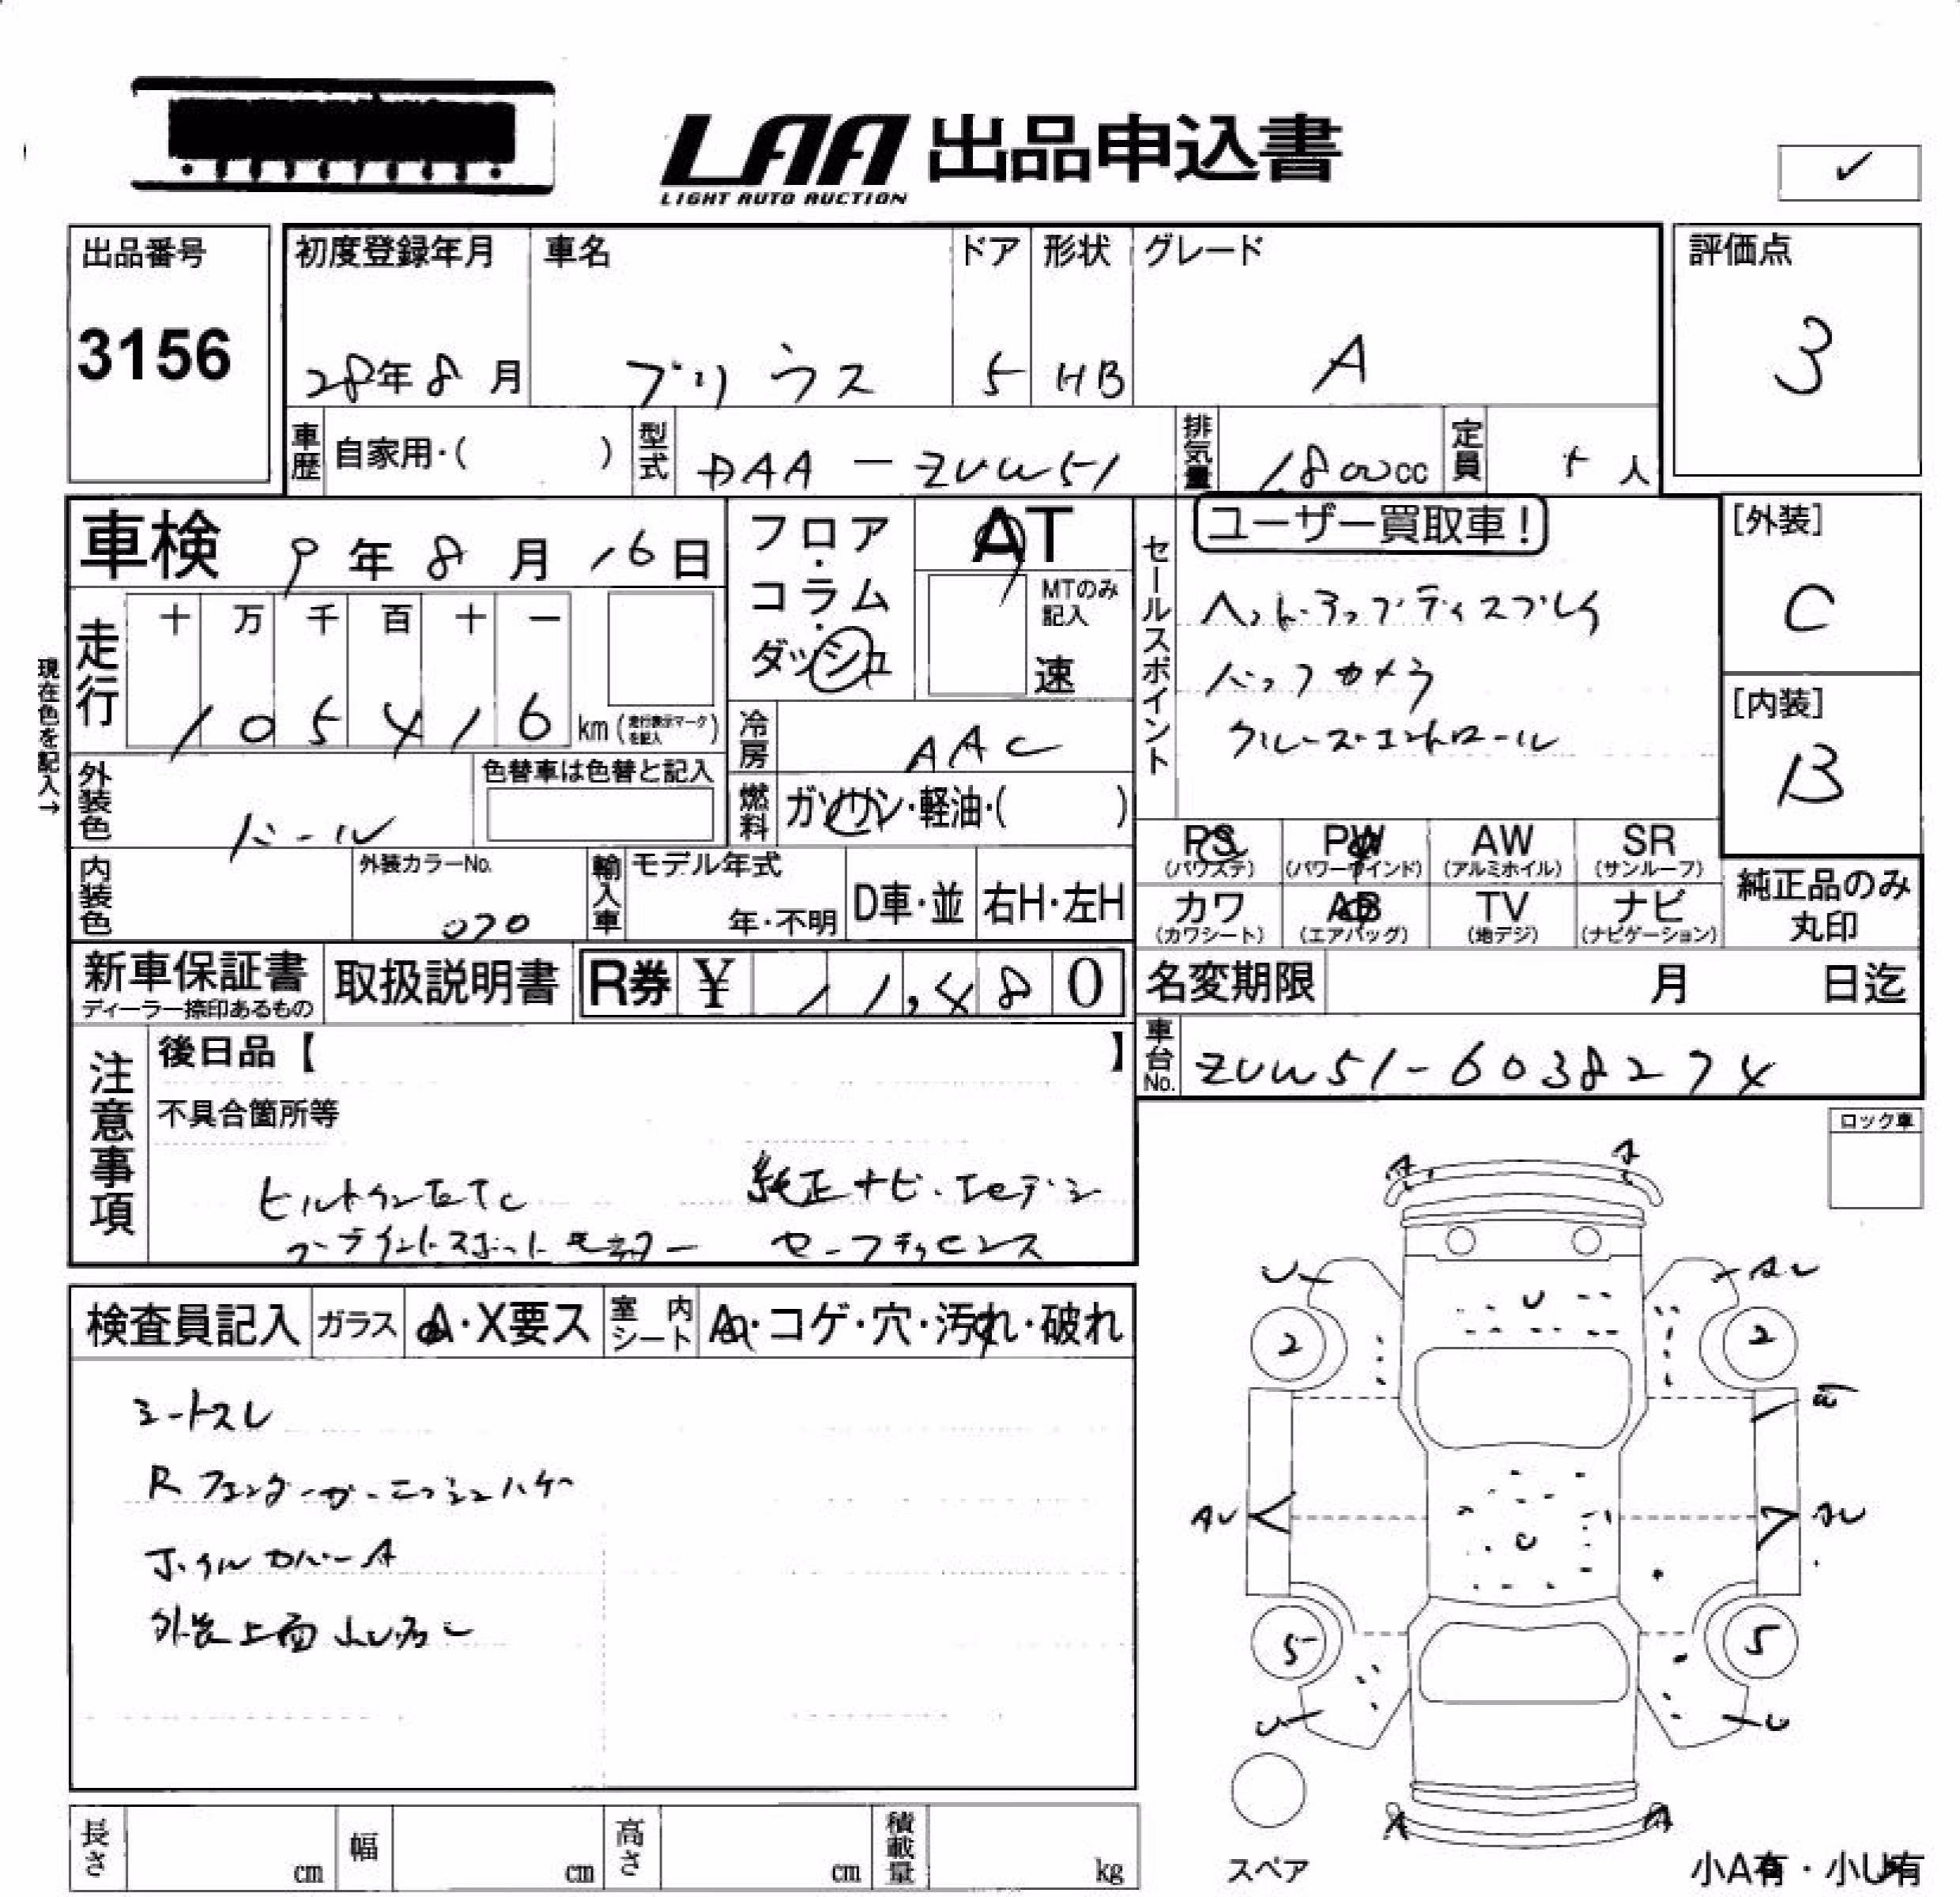 LAA 出品申込書
LIGHT AUTO AUCTION
✓
出品番号
3156
初度登録年月
28年8月
車名
プリウス
ドア
5
形状
HB
グレード
A
評価点
3
車歴
自家用・( )
型式
DAA-ZVW51
排気量
1800cc
定員
5人
車検 9年8月16日
フロア・コラム・ダッシュ
AT
MTのみ記入
速
セールスポイント
ユーザー買取車!
ヘッドアップディスプレイ
バックカメラ
クルーズコントロール
[外装]
C
[内装]
B
現在色を記入→
走行
十 万 千 百 十 一
1 0 5 4 1 6 km (走行表示マークを記入)
冷房
AAC
燃料
ガソリン・軽油・( )
外装色
パール
色替車は色替と記入
内装色
外装カラーNo.
070
輸入車
モデル年式
年・不明
D車・並
右H・左H
PS (パワステ)
PW (パワーウインド)
AW (アルミホイル)
SR (サンルーフ)
カワ (カワシート)
AB (エアバッグ)
TV (地デジ)
ナビ (ナビゲーション)
純正品のみ丸印
新車保証書
ディーラー捺印あるもの
取扱説明書
R券 ¥ 11,480
名変期限 月 日迄
車台No.
ZVW51-6038274
注意事項
後日品【 】
不具合箇所等
ビルトインETC 純正ナビ・
ブラインドスポットモニター セーフティセンス
ロック車
検査員記入
ガラス
A・X要ス
室内シート
A・コゲ・穴・汚れ・破れ
シートスレ
Rフェンダーガーニッシュハゲ
ホイルカバーA
外装上面小U多し
A A
U AU
U
2 2
AU AU
U
5 5
U U
A A
スペア
小A有・小U有
長さ cm
幅 cm
高さ cm
積載量 kg